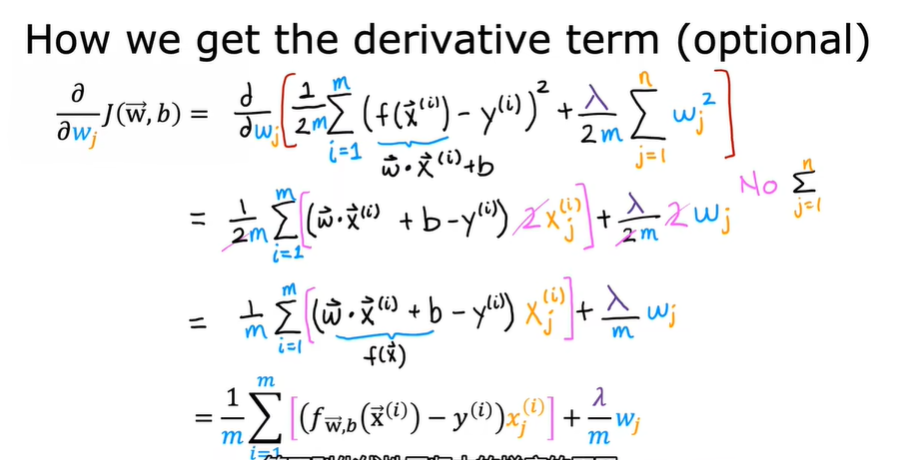 How we get the derivative term (optional)
∂/∂w_j J(w⃗, b) = d/dw_j [ 1/2m Σ_{i=1}^{m} (f(x⃗^(i)) - y^(i))^2 + λ/2m Σ_{j=1}^{n} w_j^2 ]
w⃗ · x⃗^(i) + b
= 1/2m Σ_{i=1}^{m} [(w⃗ · x⃗^(i) + b - y^(i)) 2 x_j^(i)] + λ/2m 2 w_j No Σ_{j=1}^{n}
= 1/m Σ_{i=1}^{m} [(w⃗ · x⃗^(i) + b - y^(i)) x_j^(i)] + λ/m w_j
f(x⃗)
= 1/m Σ_{i=1}^{m} [(f_{w⃗,b}(x⃗^(i)) - y^(i)) x_j^(i)] + λ/m w_j